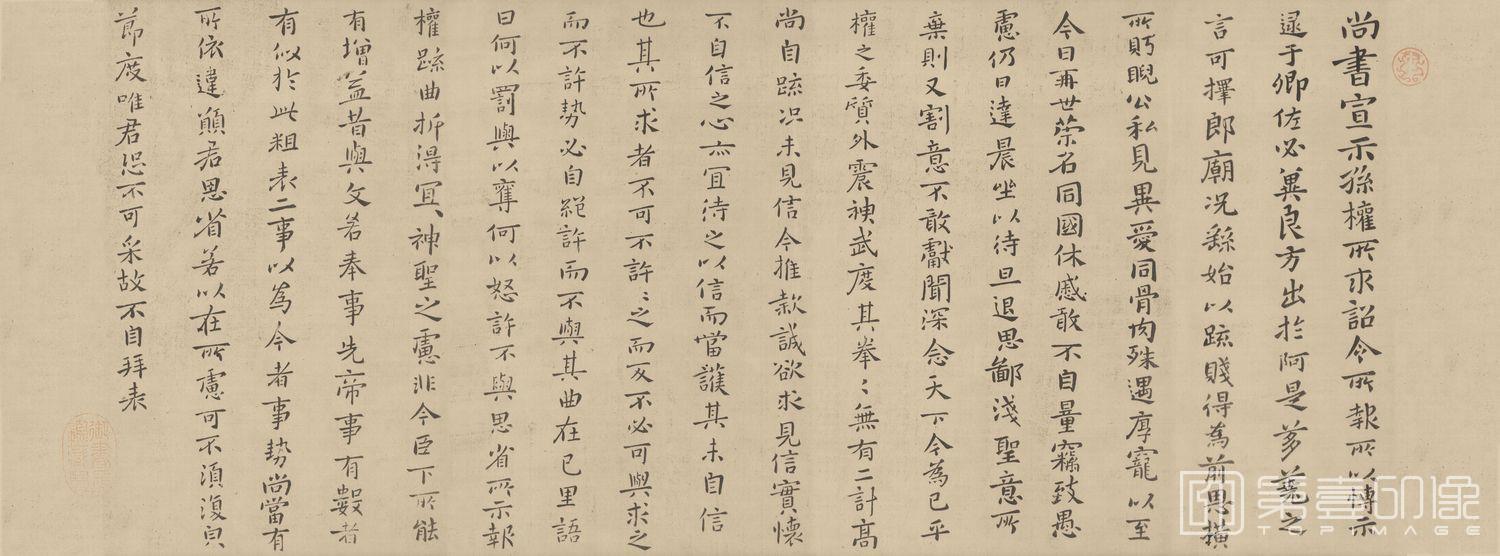 尚書宣示孫權所求詔令所報所以博示
逮于卿佐必冀良方出於阿是芻蕘之
言可擇郎廟况繇始以疏賤得為前恩橫
所眄睨公私見異愛同骨肉殊遇厚寵以至
今日再世榮名同國休慼敢不自量竊致愚
慮仍日達晨坐以待旦退思鄙淺聖意所
棄則又割意不敢獻聞深念天下今為已平
權之委質外震神武度其拳〻無有二計高
尚自疏况未見信今推款誠欲求見信實懷
不自信之心亦宜待之以信而當護其未自信
也其所求者不可不許〻之而反不必可與求之
而不許勢必自絕許而不與其曲在己里語
曰何以罰與以奪何以怒許不與思省所示報
權疏曲折得宜、神聖之慮非今臣下所能
有增益昔與文若奉事先帝事有數者
有似於此粗表二事以為今者事勢尚當有
所依違願君思省若以在所慮可不須復貞
節度唯君恐不可采故不自拜表
集壹印像
TOP IMAGE